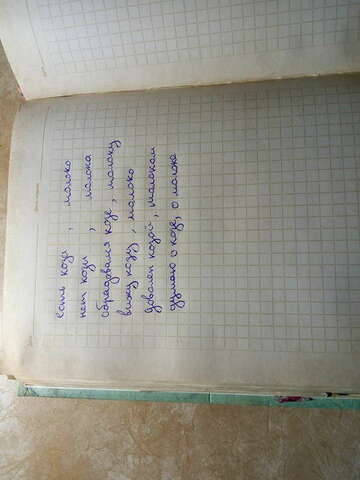 есть коза, молоко
нет козы, молока
обрадовался козе, молоку
вижу козу, молоко
доволен козой, молоком
думаю о козе, о молоке